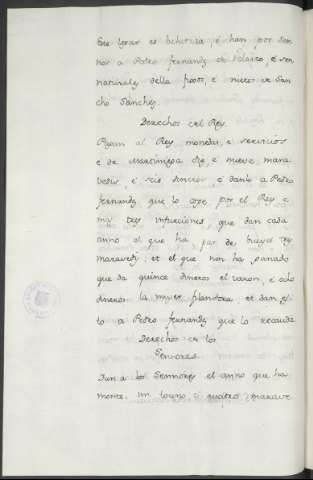 Este logar es behetria, é han por Sen
nor a Pedro fernandz de Velasco, é son
naturales della fijos, é nietos de San
cho Sanchez.
Derechos del Rey.
Pagan al Rey monedas, é servicios
é de Martiniega diez é nueve mara
vedis, é seis dineros é danlo a Pedro
fernandz que lo ovo por el Rey é
mas tres infurciones, que dan cada
anno el que ha par de bueyes tres
maravedis, et el que non ha ganado
que da quince dineros el varon, é ocho
dineros la muger et dan es
to a Pedro fernandz que lo recauda
Derechos de los
Sennores.
Dan a los Sennores el anno que ha
monte un touno é quatro marave